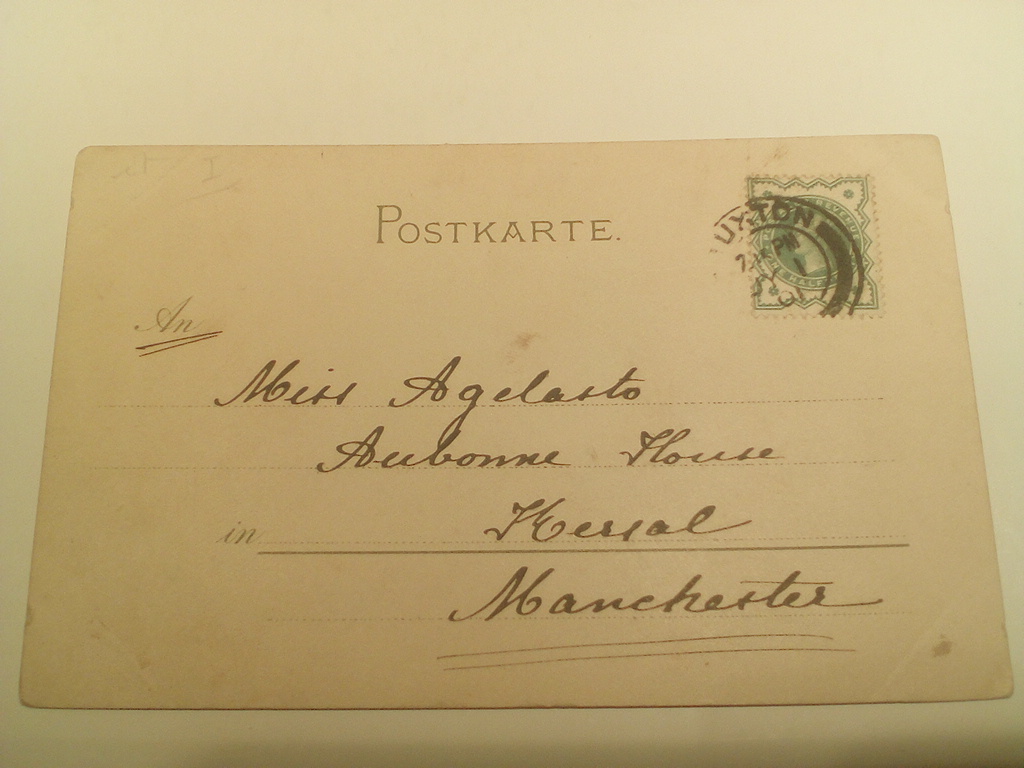 POSTKARTE.
UXTON
PM
1
01
An
Miss Agelasto
Aubonne House
in Kersal
Manchester